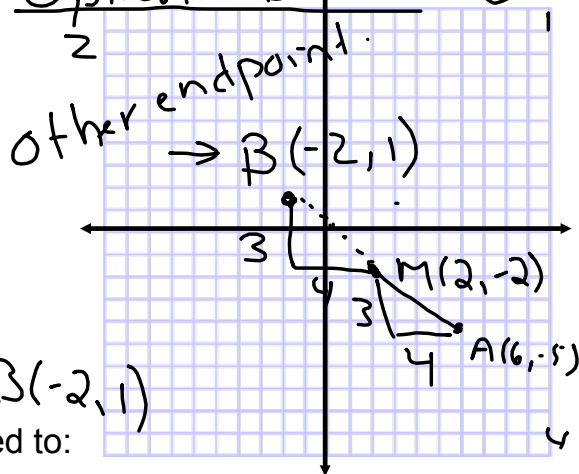 2
1
other endpoint.
→ B(-2,1)
3
4
M(2,-2)
3
4
A(6,-5)
B(-2,1)
ed to:
4